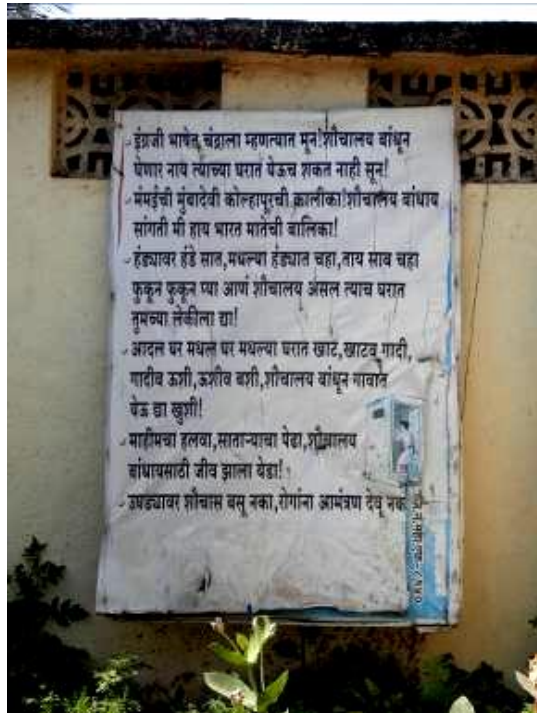 - इंग्रजी भाषेत चंद्राला म्हणत्यात मून!शौचालय बांधून
घेणार नाय त्याच्या घरात येऊच शकत नाही सून!
- मंमईची मुंबादेवी कोल्हापूरची कालीका!शौचालय बांधाय
सांगती मी हाय भारत मातेची बालिका!
- हंड्यावर हंडे सात,मधल्या हंड्यात चहा,ताय साब चहा
फुकून फुकून प्या आणं शौचालय अंसल त्याच घरात
तुमच्या लेकीला द्या!
- आदल घर मधल घर मधल्या घरात खाट,खाटव गादी,
गादीव ऊशी,ऊशीव बशी,शौचालय बांधून गावात
येऊ द्या खुशी!
- माहीमचा हलवा,साताऱ्याचा पेढा,शौचालय
बांधायसाठी जीव झाला येडा!
- उघड्यावर शौचास बसू नका,रोगांना आमंत्रण देवू नका